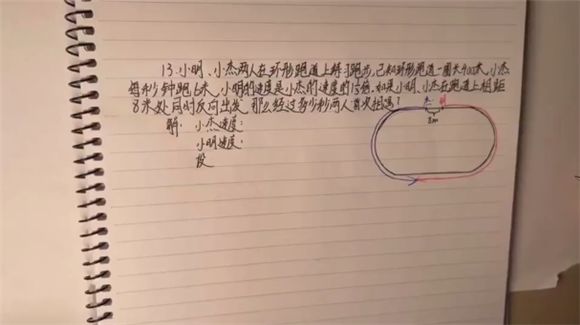 13. 小明、小杰两人在环形跑道上练习跑步,已知环形跑道一圈长400米,小杰
每秒钟跑6米,小明的速度是小杰的速度的1.5倍,如果小明、小杰在跑道上相距
8米处同时反向出发,那么经过多少秒两人首次相遇?
杰 明
8m
解: 小杰速度:
小明速度:
设